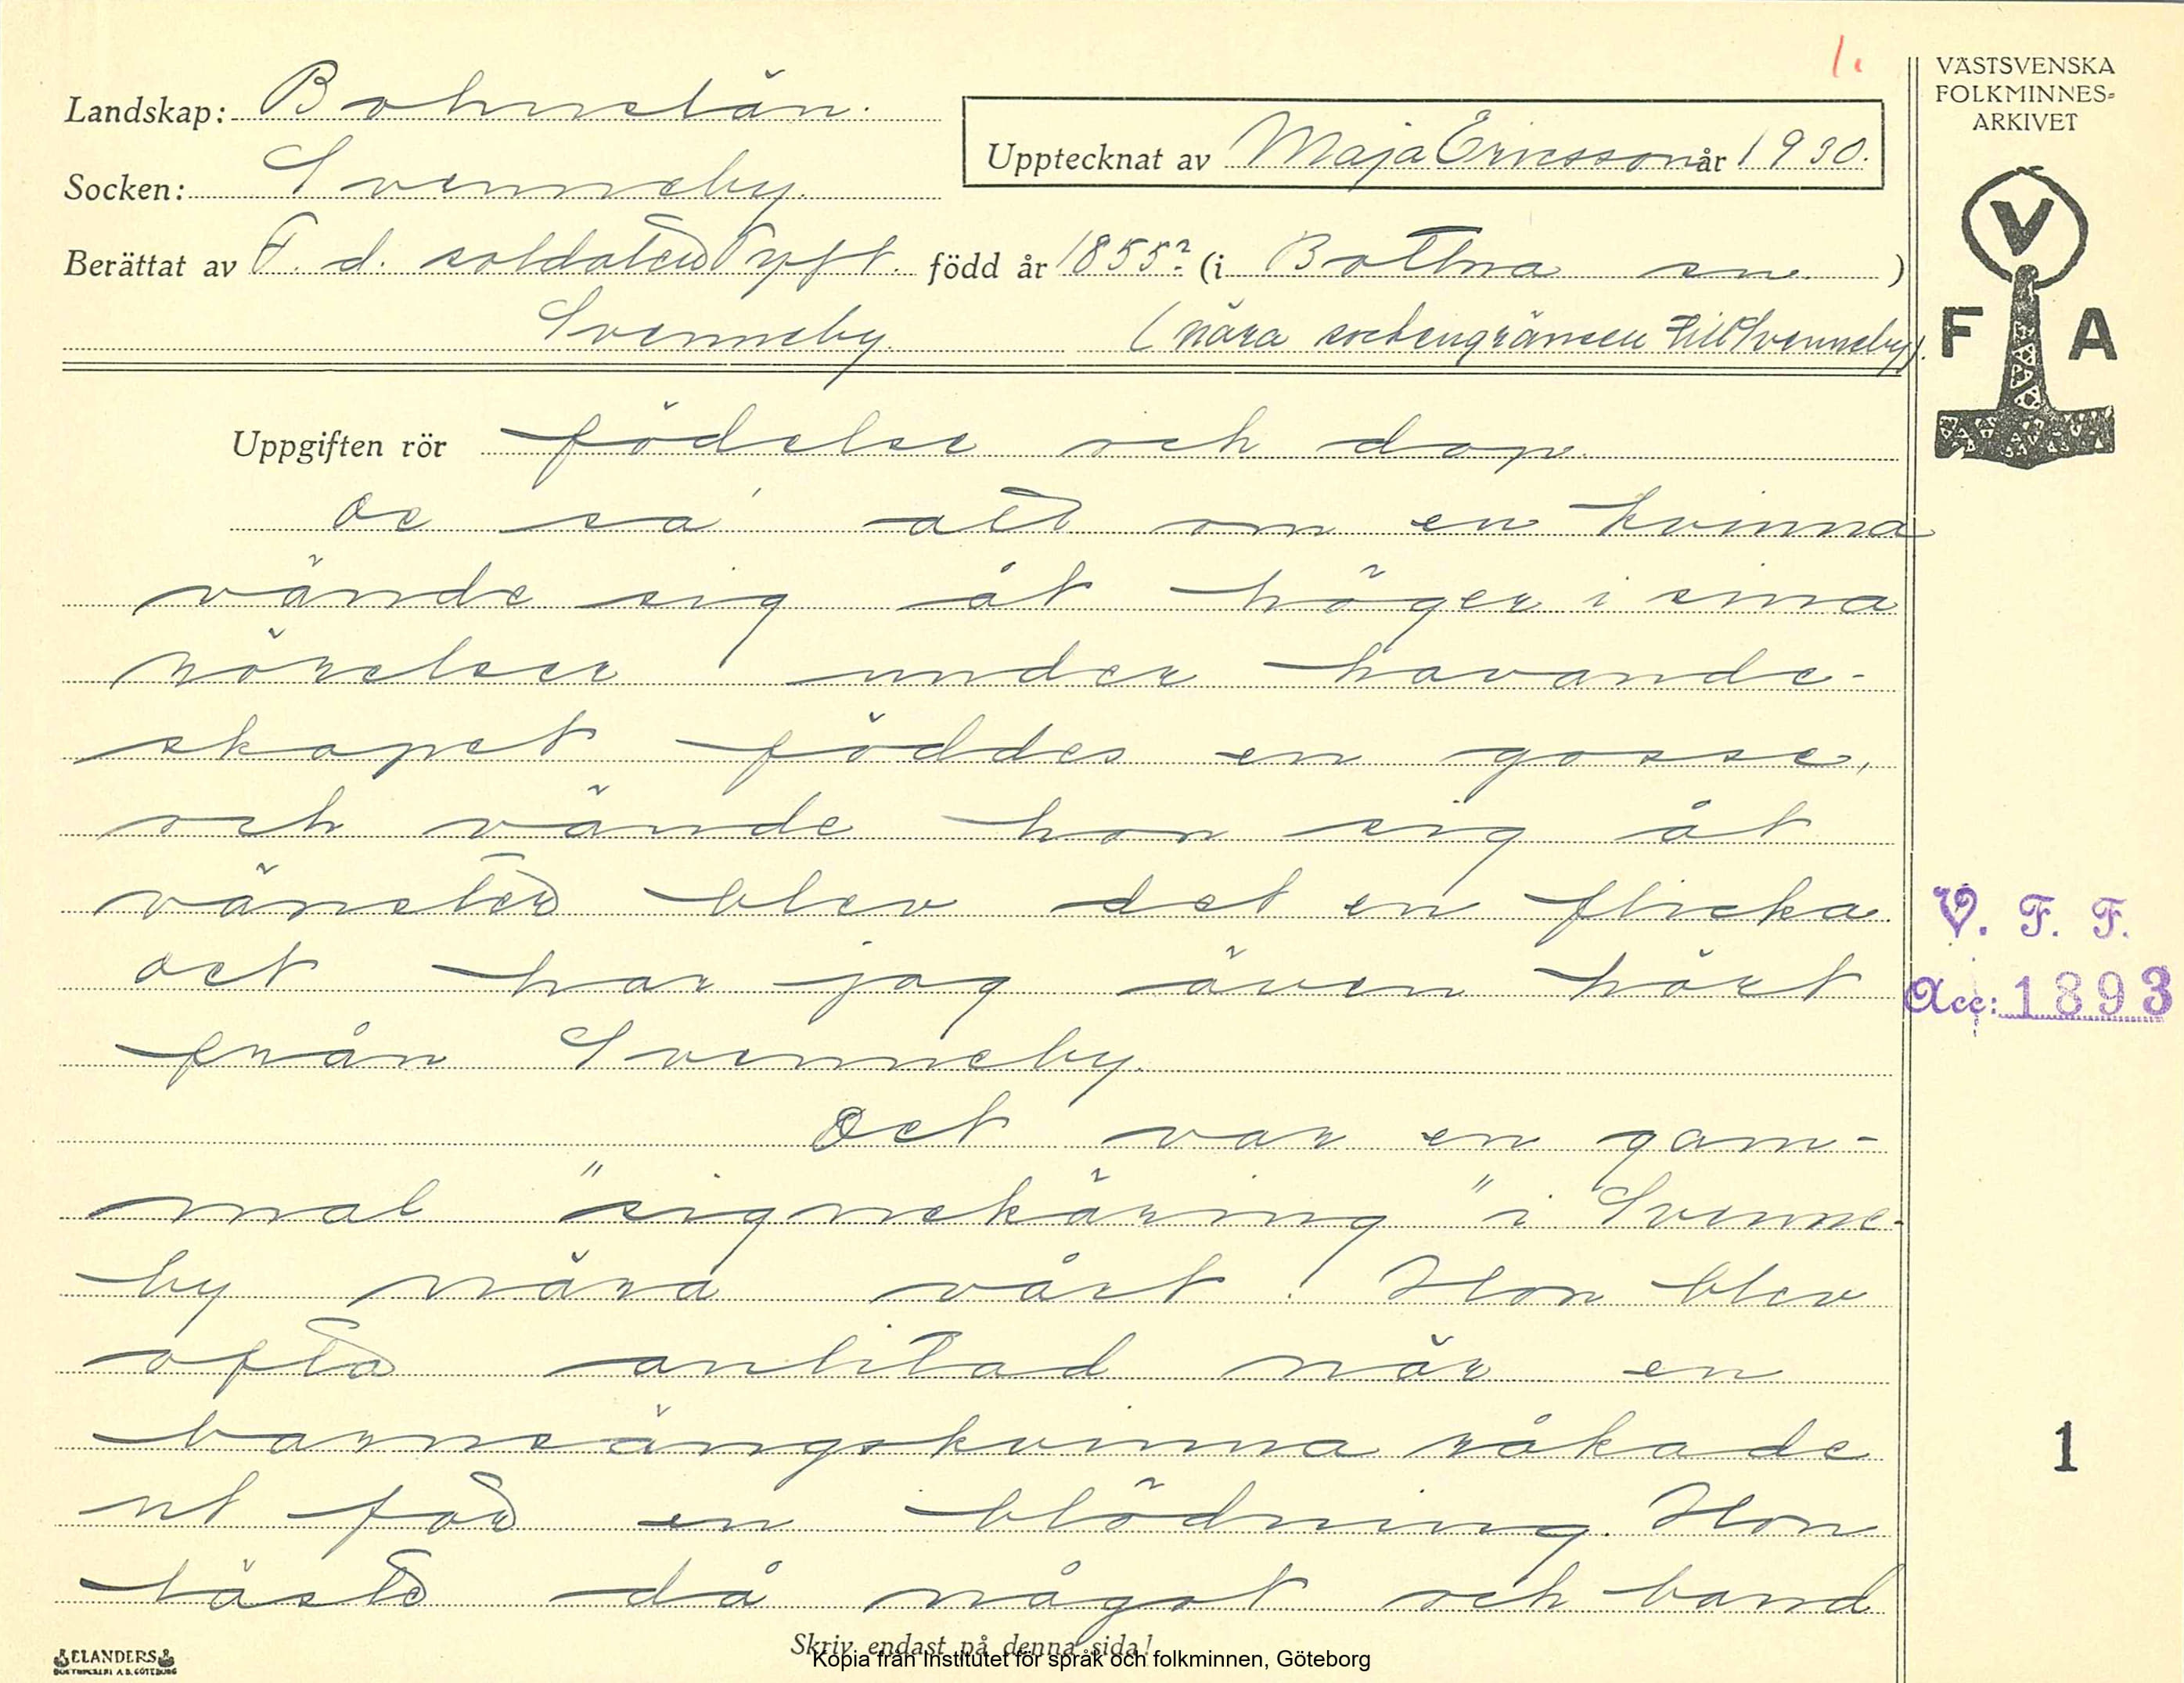 1.
VÄSTSVENSKA
FOLKMINNES-
ARKIVET
Landskap: Bohuslän.
Upptecknat av Maja Ericsson år 1930.
Socken: Svenneby.
Berättat av F. d. soldaten Tyft. född år 1855? (i Bottna sn. )
Svenneby. (nära sockengränsen till Svenneby).
V
F A
Uppgiften rör födelse och dop.
De sa' att om en kvinna
vände sig åt höger i sina
rörelser under havande-
skapet föddes en gosse,
och vände hon sig åt
vänster blev det en flicka.
V. F. F.
Det har jag även hört
Acc: 1893
från Svenneby.
Det var en gam-
mal "signekäring" i Svenne-
by nära vårt. Hon blev
ofta anlitad när en
barnsängskvinna råkade
1
ut för en blödning. Hon
läste då något och band
Skriv endast på denna sida!
ELANDERS
BOKTRYCKERI A.B. GÖTEBORG
Kopia från Institutet för språk och folkminnen, Göteborg